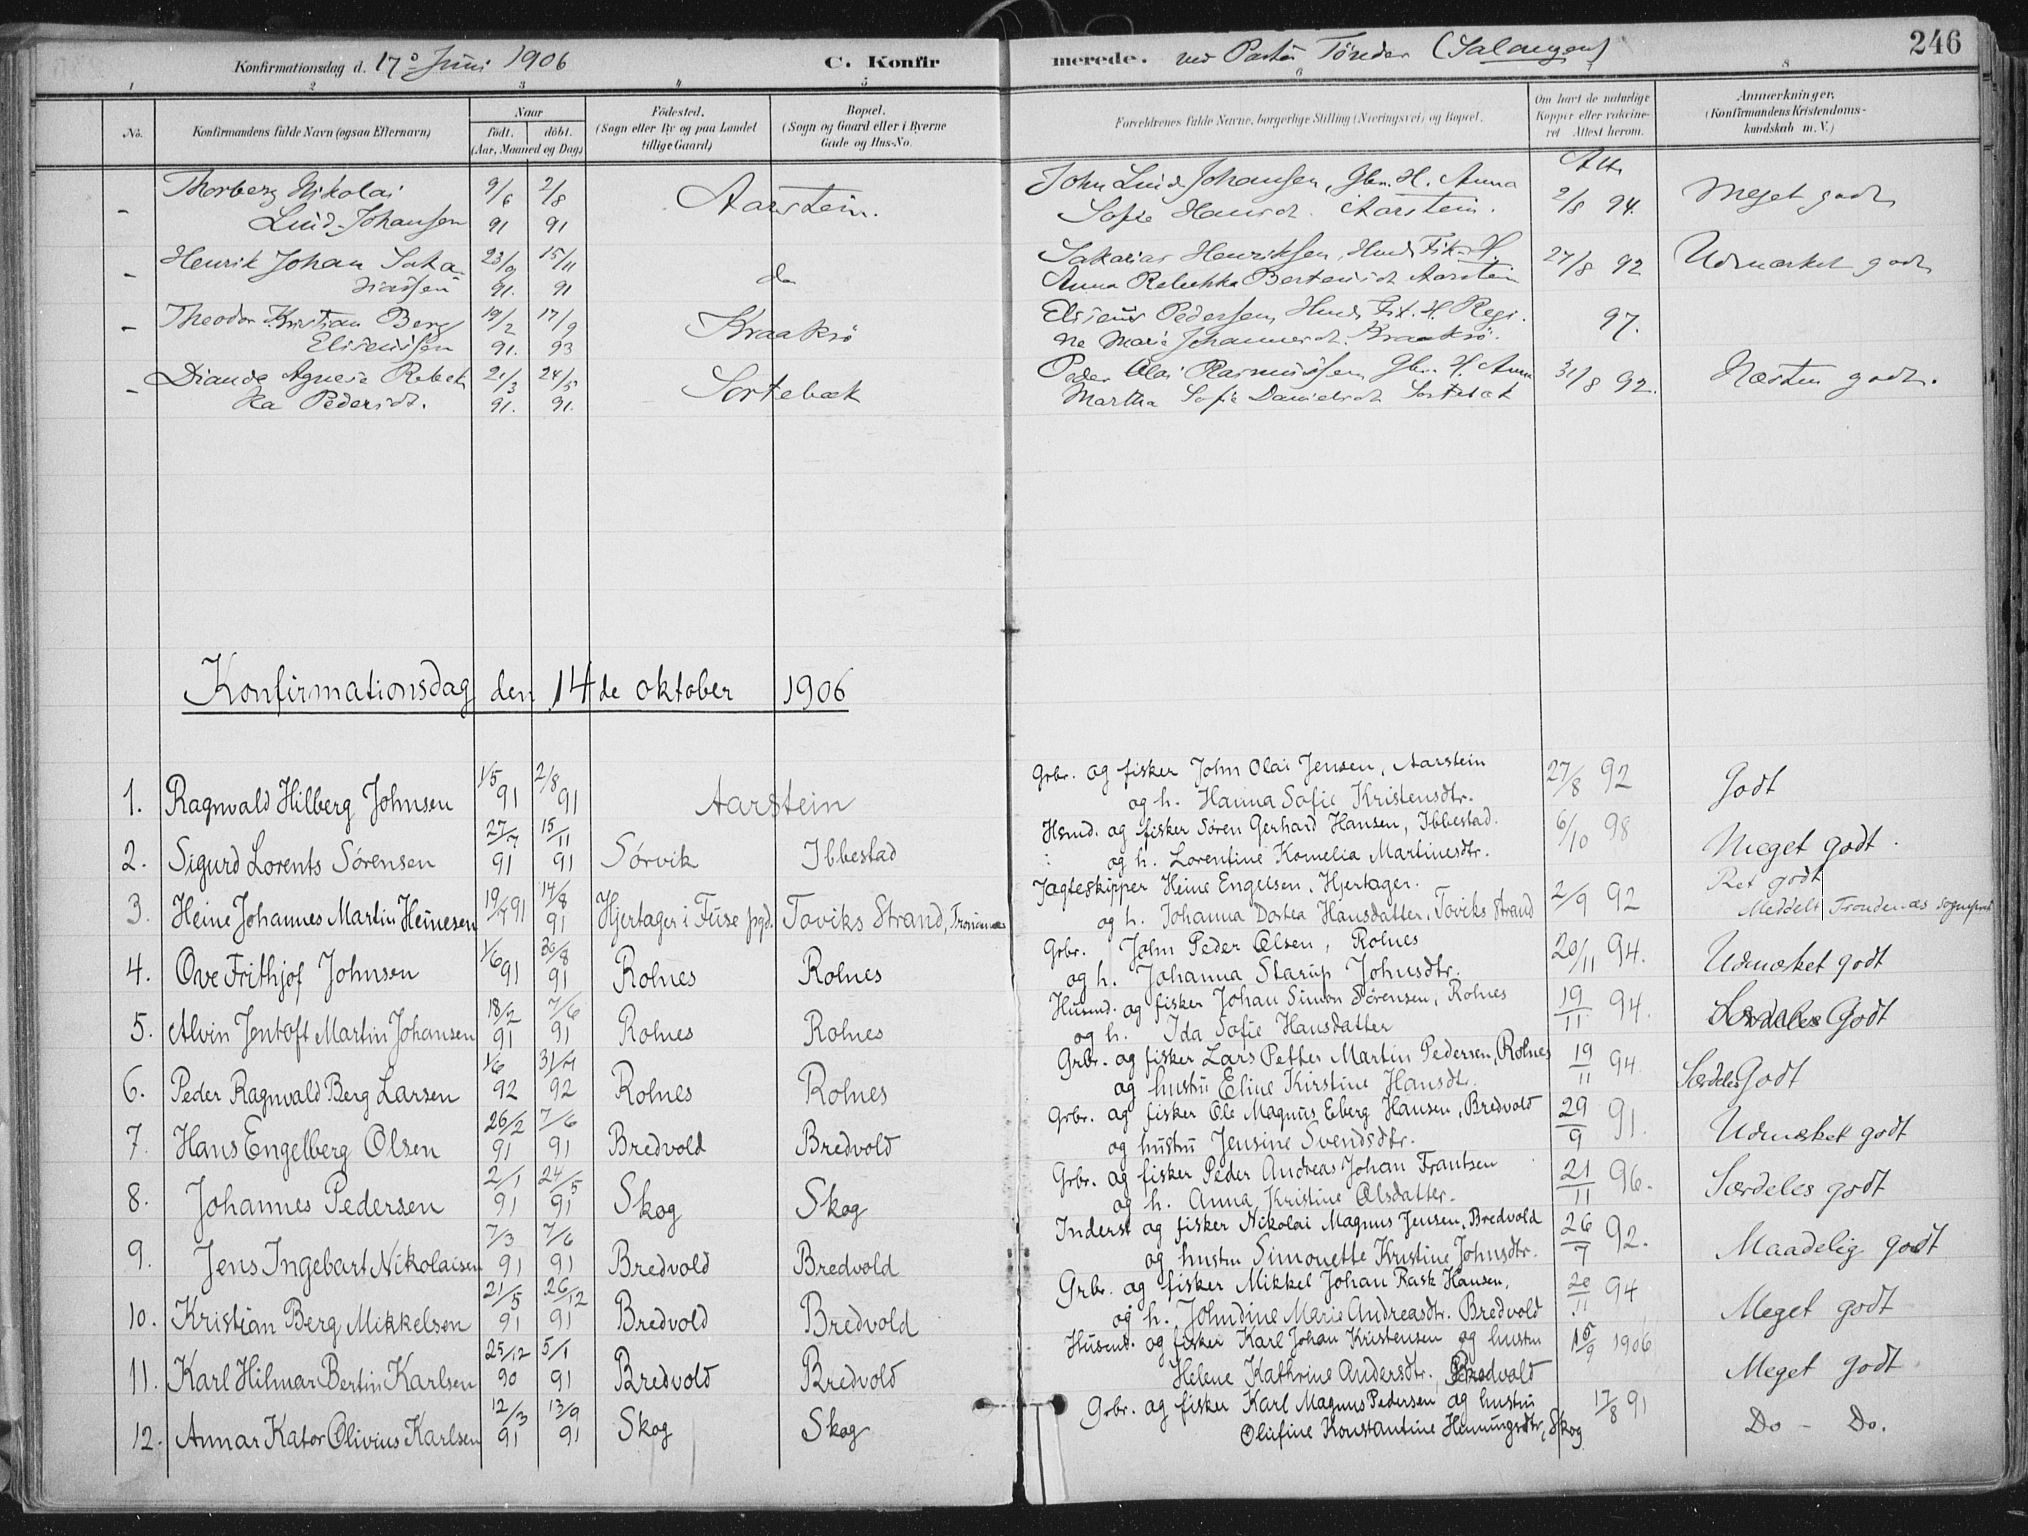 Konfirmationsdag d. 17de Juni 1906 C. Konfirmerede. ved Pastor Tönder (Salangen) 246
1 2 3 4 5 6 8
No. Konfirmandens fulde Navn (ogsaa Efternavn) Naar födt. döbt. (Aar, Maaned og Dag) Födested. (Sogn eller By og paa Landet tillige Gaard) Bopæl. (Sogn og Gaard eller i Byerne Gade og Hus-No. Forældrenes fulde Navne, borgerlige Stilling (Næringsvei) og Bopæl. Om havt de naturlige Kopper eller vakcineret. Attest herom. Anmærkninger. (Konfirmandens Kristendomskundskab m. V.)
- Thorberg Nikolai 9/6 2/8 Aarstein. John Lind Johansen, Gbr. H. Anna Att. 2/8 94. Meget godt
Lind-Johansen 91 91 Sofie Hansdt. Aarstein.
- Henrik Johan Saka- 23/9 15/11 do Sakarias Henriksen, Husm Fisk. H. 27/8 92 Udmærket godt
riassen 91. 91 Anna Rebekka Berteusdt Aarstein
- Theodor Kristian Berg 19/2 17/9 Kraaksö Eliseus Pedersen, Husm. Fisk. H. Regi- 97.
Eliseussen 91. 93 ne Marie Johannesdt. Kraaksö.
- Dianda Agnesie Rebek 21/3 24/5 Sortebæk Peder Olai Rasmussen, Gbr. H. Anne 31/8 92. Næsten godt.
ka Pedersdt. 91. 91. Martha Sofie Danielsdt Sortebæk
Konfirmationsdag den 14de oktober 1906
1. Ragnvald Hilberg Johnsen 1/5 91 2/8 91 Aarstein Grbr. og fisker John Olai Jensen, Aarstein 27/8 92 Godt
og h. Hanna Sofie Kristensdtr.
2. Sigurd Lorents Sörensen 27/7 91 15/11 91 Sörvik Ibbestad Hsmd. og fisker Søren Gerhard Hansen, Ibbestad. 6/10 98 Meget godt.
og h. Lorentine Kornelia Martinesdtr.
3. Heine Johannes Martin Heinesen 19/7 91 14/8 91 Hjertager i Fuse pgd. Toviks Strand, Trondenæs Jagteskipper Heine Engelsen, Hjertager. 2/9 92 Ret godt
og h. Johanna Dortea Hansdatter, Toviks Strand Meddelt Trondenæs sogneprest
4. Ove Frithjof Johnsen 1/6 91 30/8 91 Rolnes Rolnes Grbr. John Peder Olsen, Rolnes 20/11 94. Udmærket godt
og h. Johanna Starup Johnsdtr.
5. Alvin Jentoft Martin Johansen 18/2 91 7/6 91 Rolnes Rolnes Husmd. og fisker Johan Simon Sörensen, Rolnes 19/11 94. Særdeles Godt
og h. Ida Sofie Hansdatter
6. Peder Ragnvald Berg Larsen 1/6 92 31/7 92 Rolnes Rolnes Grbr. og fisker Lars Petter Martin Pedersen, Rolnes 19/11 94 Særdeles Godt
og hustru Eline Kirstine Hansdtr.
7. Hans Engelberg Olsen 26/2 91 7/6 91 Bredvold Bredvold Grbr. og fisker Ole Magnus Eberg Hansen, Bredvold 29/9 91. Udmærket godt
og hustru Jensine Svendsdtr.
8. Johannes Pedersen 2/1 91 24/5 91 Skog Skog Grbr. og fisker Peder Andreas Johan Frantsen 21/11 96. Særdeles godt
og h. Anna Kristine Olsdatter.
9. Jens Ingebart Nikolaisen 7/3 91 7/6 91 Bredvold Bredvold Inderst og fisker Nikolai Magnus Jensen, Bredvold 26/7 92. Maadelig godt
og hustru Simonette Kristine Johnsdtr.
10. Kristian Berg Mikkelsen 21/5 91 26/12 91 Bredvold Bredvold Grbr. og fisker Mikkel Johan Rask Hansen, 20/11 94 Meget godt
og h. Johndine Marie Andreasdtr. Bredvold
11. Karl Hilmar Bertin Karlsen 25/12 90 5/1 91 Bredvold Bredvold Husmd. og fisker Karl Johan Kristensen og hustru 15/9 1906 Meget godt
Helene Kathrine Andersdtr., Bredvold
12. Annar Kator Olivius Karlsen 12/3 91 13/9 91 Skog Skog Grbr. og fisker Karl Magnus Pedersen og hustru 17/8 91 Do - Do.
Olufine Konstantine Henningsdtr, Skog